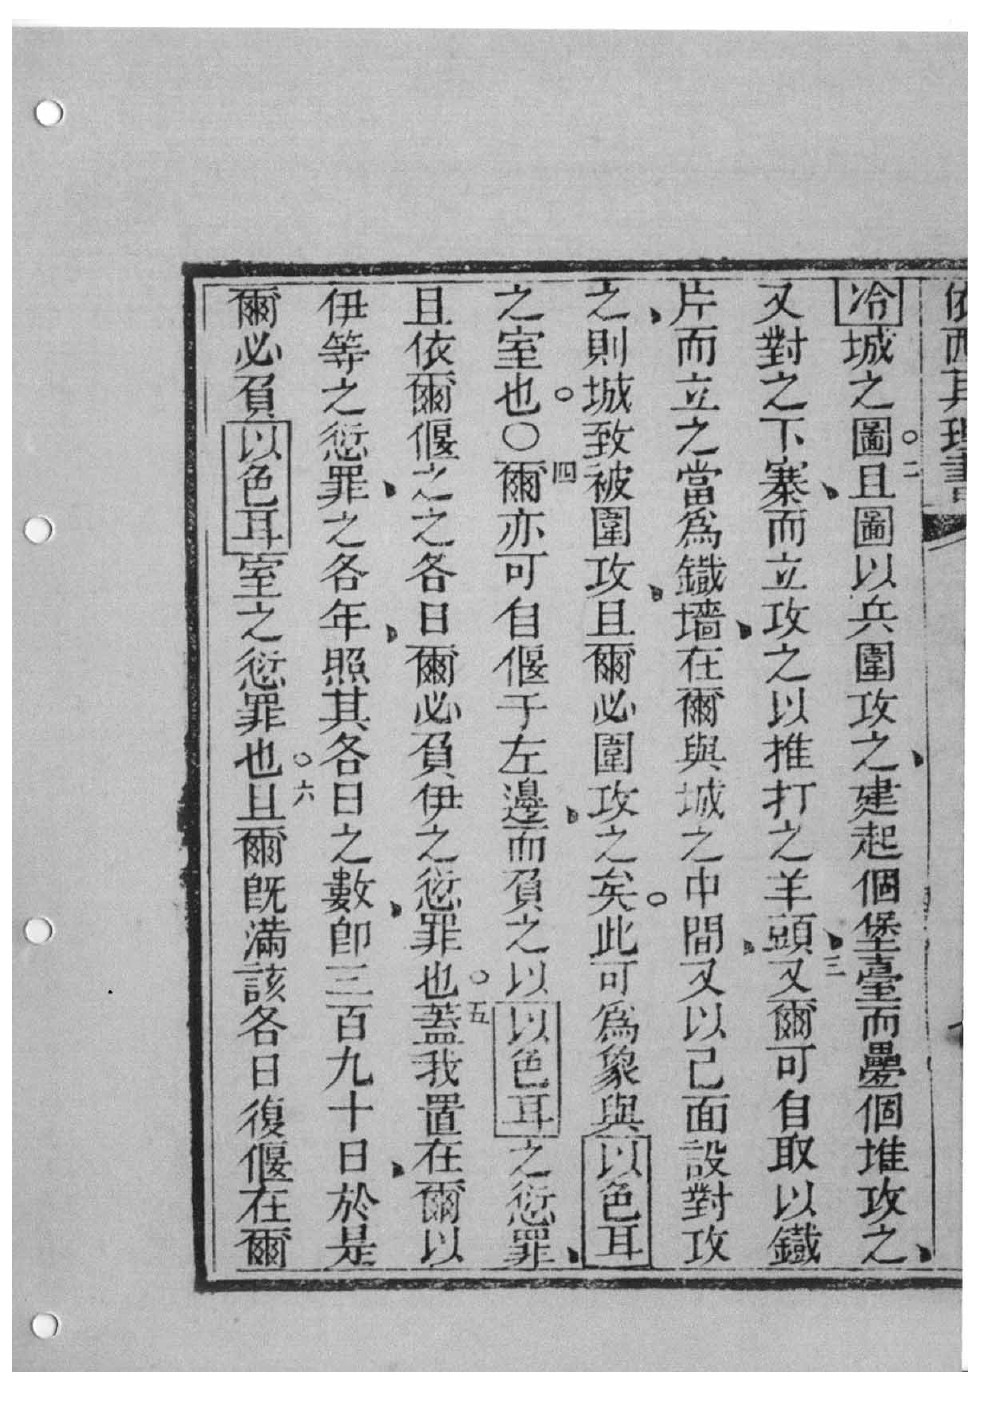 依西其理書
冷城之圖。二且圖以兵圍攻之、建起個堡臺而壘個堆攻之、
又對之下寨、而立攻之以推打之羊頭、三又爾可自取以鐵
片而立之當爲鐵墻、在爾與城之中間、又以己面設對攻
之、則城致被圍攻、且爾必圍攻之矣。此可爲象與以色耳
之室也。〇四爾亦可自偃于左邊、而負之以以色耳之愆罪、
且依爾偃之之各日爾必負伊之愆罪也。五蓋我置在爾以
伊等之愆罪、之各年、照其各日之數、卽三百九十日、於是
爾必負以色耳室之愆罪也。六且爾旣滿該各日復偃在爾